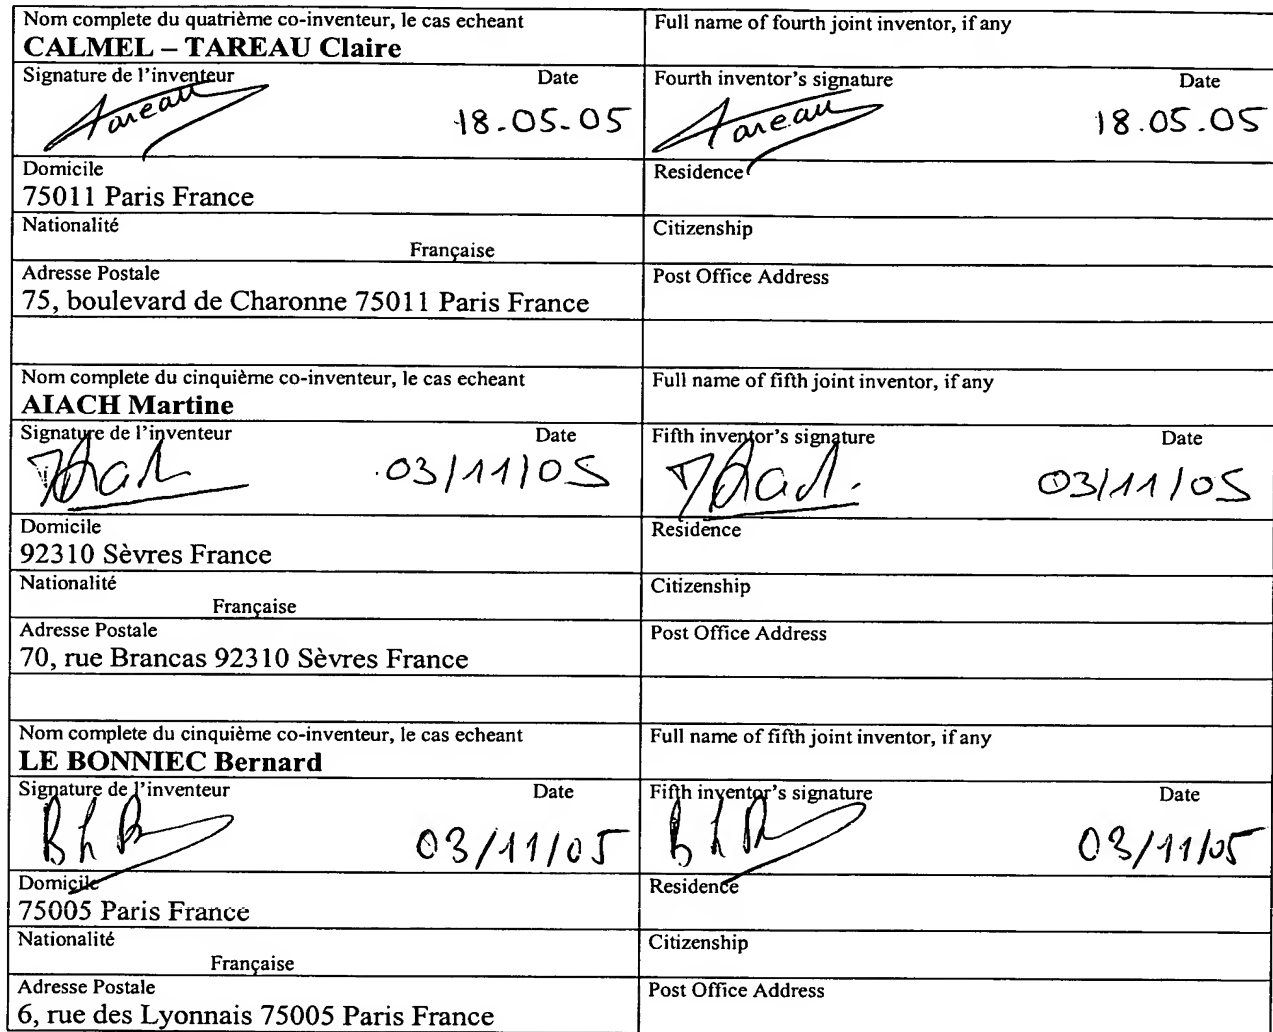 Nom complete du quatrième co-inventeur, le cas echeant
CALMEL – TAREAU Claire
Full name of fourth joint inventor, if any
Signature de l'inventeur Date
Tareau 18.05.05
Fourth inventor's signature Date
Tareau 18.05.05
Domicile
75011 Paris France
Residence
Nationalité
Française
Citizenship
Adresse Postale
75, boulevard de Charonne 75011 Paris France
Post Office Address
Nom complete du cinquième co-inventeur, le cas echeant
AIACH Martine
Full name of fifth joint inventor, if any
Signature de l'inventeur Date
03/11/05
Fifth inventor's signature Date
03/11/05
Domicile
92310 Sèvres France
Residence
Nationalité
Française
Citizenship
Adresse Postale
70, rue Brancas 92310 Sèvres France
Post Office Address
Nom complete du cinquième co-inventeur, le cas echeant
LE BONNIEC Bernard
Full name of fifth joint inventor, if any
Signature de l'inventeur Date
03/11/05
Fifth inventor's signature Date
03/11/05
Domicile
75005 Paris France
Residence
Nationalité
Française
Citizenship
Adresse Postale
6, rue des Lyonnais 75005 Paris France
Post Office Address